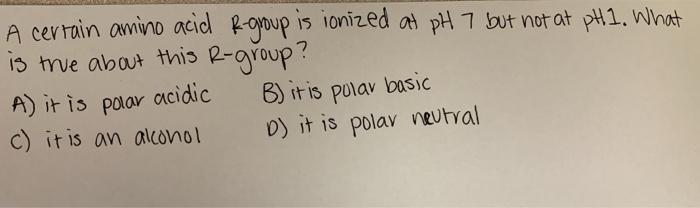 A certain amino acid R-group is ionized at pH 7 but not at pH1. What
is true about this R-group?
A) it is polar acidic B) it is polar basic
C) it is an alcohol D) it is polar neutral